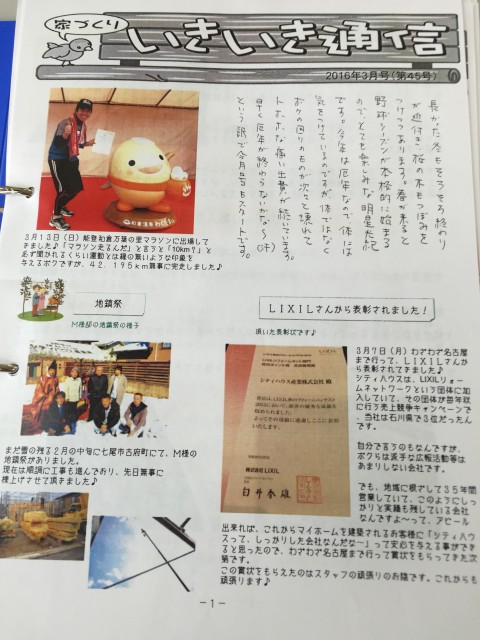 家づくり
いきいき通信
2016年3月号(第45号)
長かった冬もそろそろ終わり
が近付き、桜の木もつぼみを
つけつつあります。春が来ると
野球シーズンが本格的に始まる
ので、とても楽しみな明星です。
今年は厄年なので体には
気をつけているのですが体ではなく
ボクの回りのものが次々壊れて
トホホな痛い出費が続いています。
早く厄年が終わらないかな~(汗)
という訳で今月号もスタートです。
3月13日(日)能登和倉万葉の里マラソンに出場して
きました♪「マラソン走るんだ」と言うと「10km?」と
必ず聞かれるくらい運動とは縁の無いような印象を
与えるボクですが、42.195km無事に完走しました♪
地鎮祭
M様邸の地鎮祭の様子
まだ雪の残る2月の中旬に七尾市古府町にて、M様の
地鎮祭がありました。
現在は順調に工事も進んでおり、先日無事に
棟上げさせて頂きました♪
LIXILさんから表彰されました!
頂いた表彰状です♪
シティハウス産業株式会社 殿
株式会社LIXIL
3月7日(月)わざわざ名古屋
まで行って、LIXILさんか
ら表彰されてきました♪
シティハウスは、LIXILリフォー
ムネットワークという団体に加
入していて、その団体が毎年
に行う売上競争キャンペーンで
、当社は石川県で3位だったん
です。
自分で言うのもなんですが、
ボクらは派手な広報活動等は
あまりしない会社です。
でも、地域に根ざして35年間
営業していて、このようにしっ
かりと実績も残している会社
なんですよ~って、アピール
出来れば、これからマイホームを建築されるお客様に「シティハウ
スって、しっかりした会社なんだな~」って安心を与える事ができ
ると思ったので、わざわざ名古屋まで行って賞状をもらってきた次
第です。
この賞状をもらえたのはスタッフの頑張りのお陰です。これからも
頑張ります♪
-1-